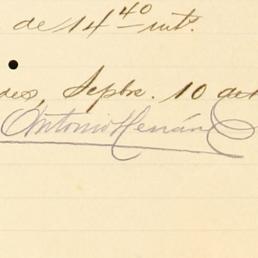 de 14 40 mts.
Sepbre. 10 de
Antonio Hernánd